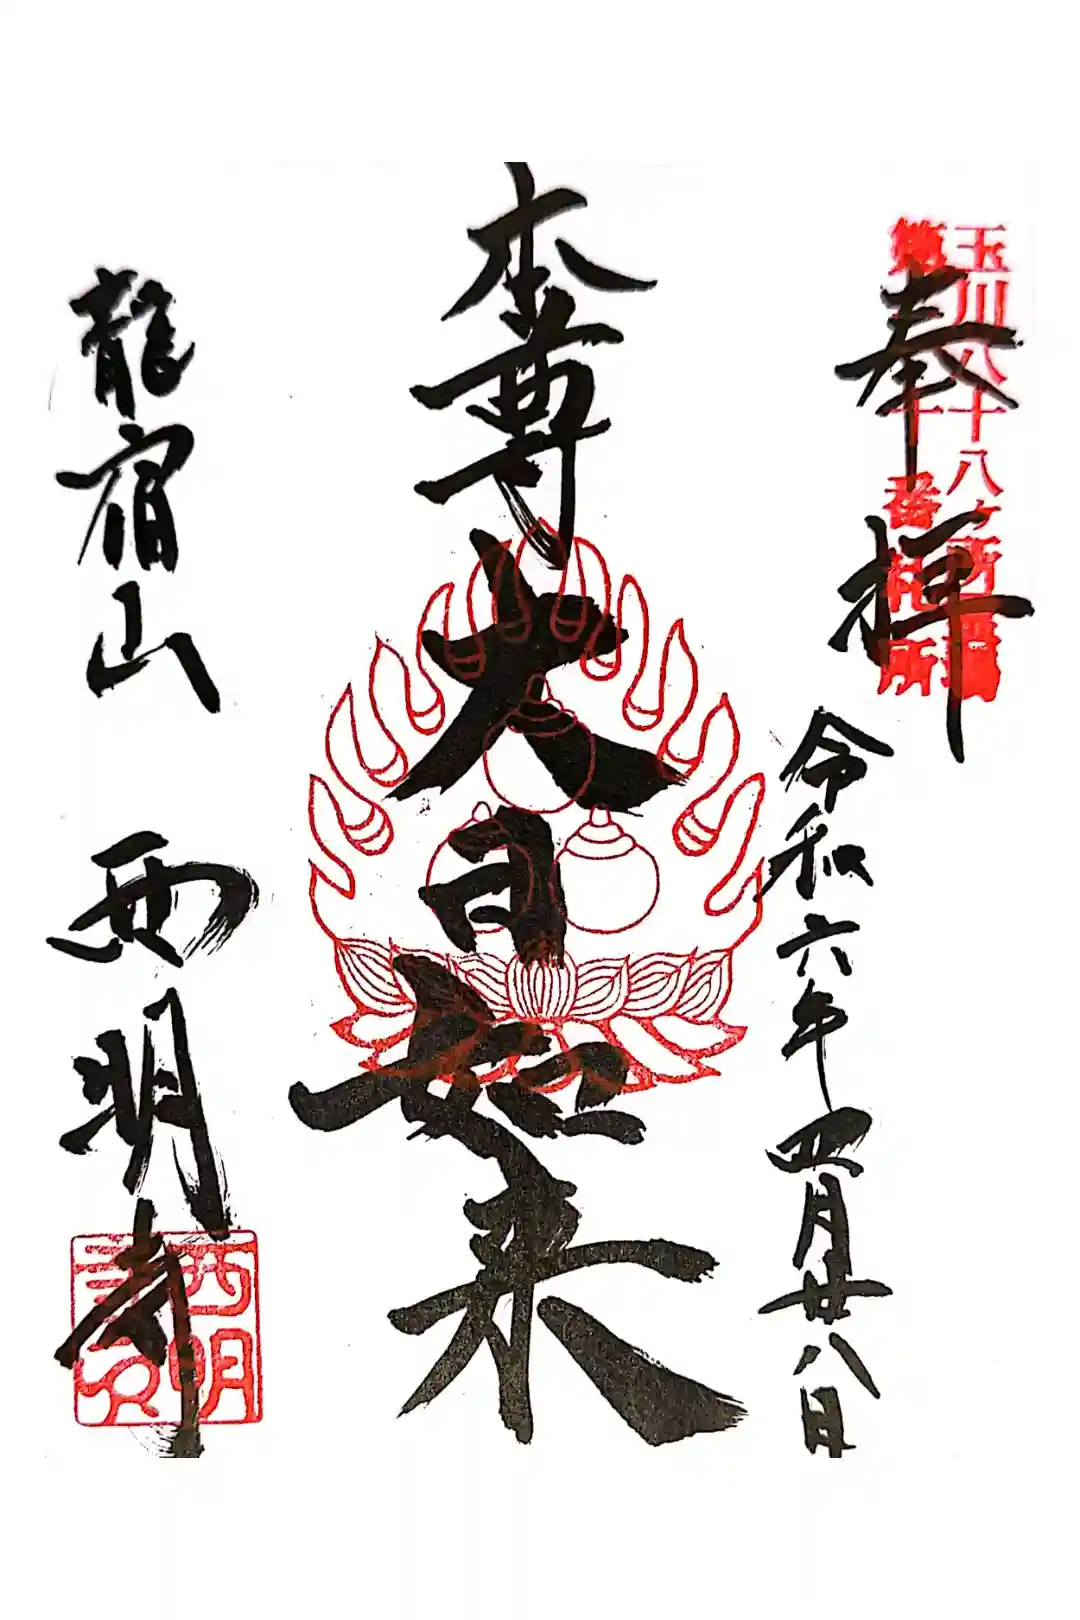 玉川八十八ヶ所霊場
奉拝
令和六年四月廿八日
本尊大日如来
龍宿山
西明寺
西明